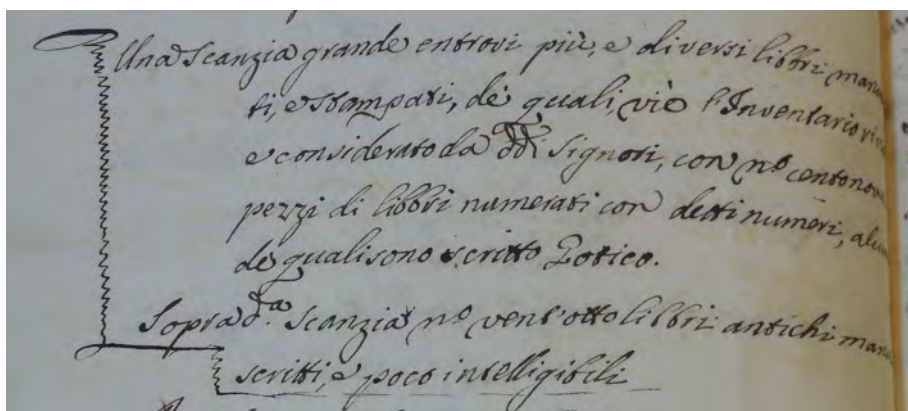 Una Scanzia grande entrovi più, e diversi libbri manu
ti, e Stampati, de quali, vi è l'Inventario
e considerato da dd.i Signori, con n.o centonov
pezzi di libbri numerati con detti numeri, alcu
de quali sono scritto Gotico.
Sopra d.a Scanzia n.o vent'otto libbri antichi manu
scritti, e poco intelligibili